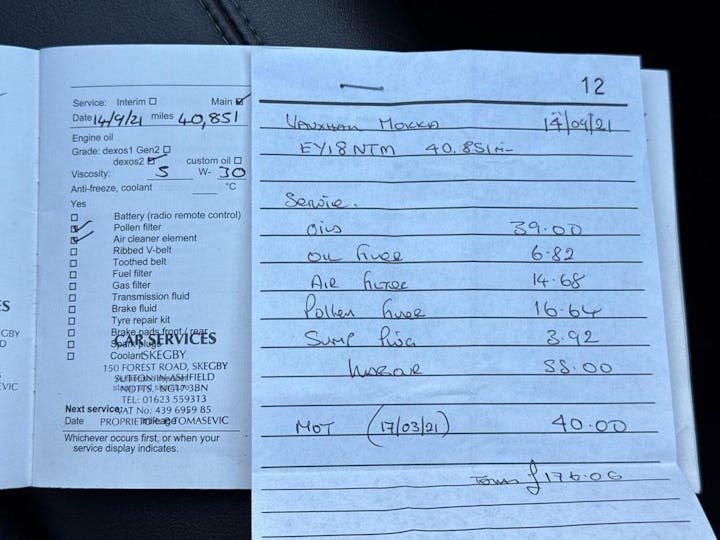 Service: Interim Main
Date 14/9/21 miles 40,851
Engine oil
Grade: dexos1 Gen2
dexos2 custom oil
Viscosity: 5 W- 30
Anti-freeze, coolant °C
Yes
Battery (radio remote control)
Pollen filter
Air cleaner element
Ribbed V-belt
Toothed belt
Fuel filter
Gas filter
Transmission fluid
Brake fluid
Tyre repair kit
Brake pads front / rear
Spark plugs
CAR SERVICES
Coolant
SKEGBY
150 FOREST ROAD, SKEGBY
SUTTON IN ASHFIELD
NOTTS. NG17 3BN
TEL: 01623 559313
Next service:
VAT No: 439 6959 85
Date
PROPRIETOR TOMASEVIC
Whichever occurs first, or when your
service display indicates.
ES
GBY
D
EVIC
12
VAUXHALL MOKKA 14/09/21
EY18NTM 40.851
Service.
OILS 39.00
OIL FILTER 6.82
AIR FILTER 14.68
Pollen Filter 16.64
Sump Plug 3.92
LABOUR 55.00
MOT (17/03/21) 40.00
Total £176.06